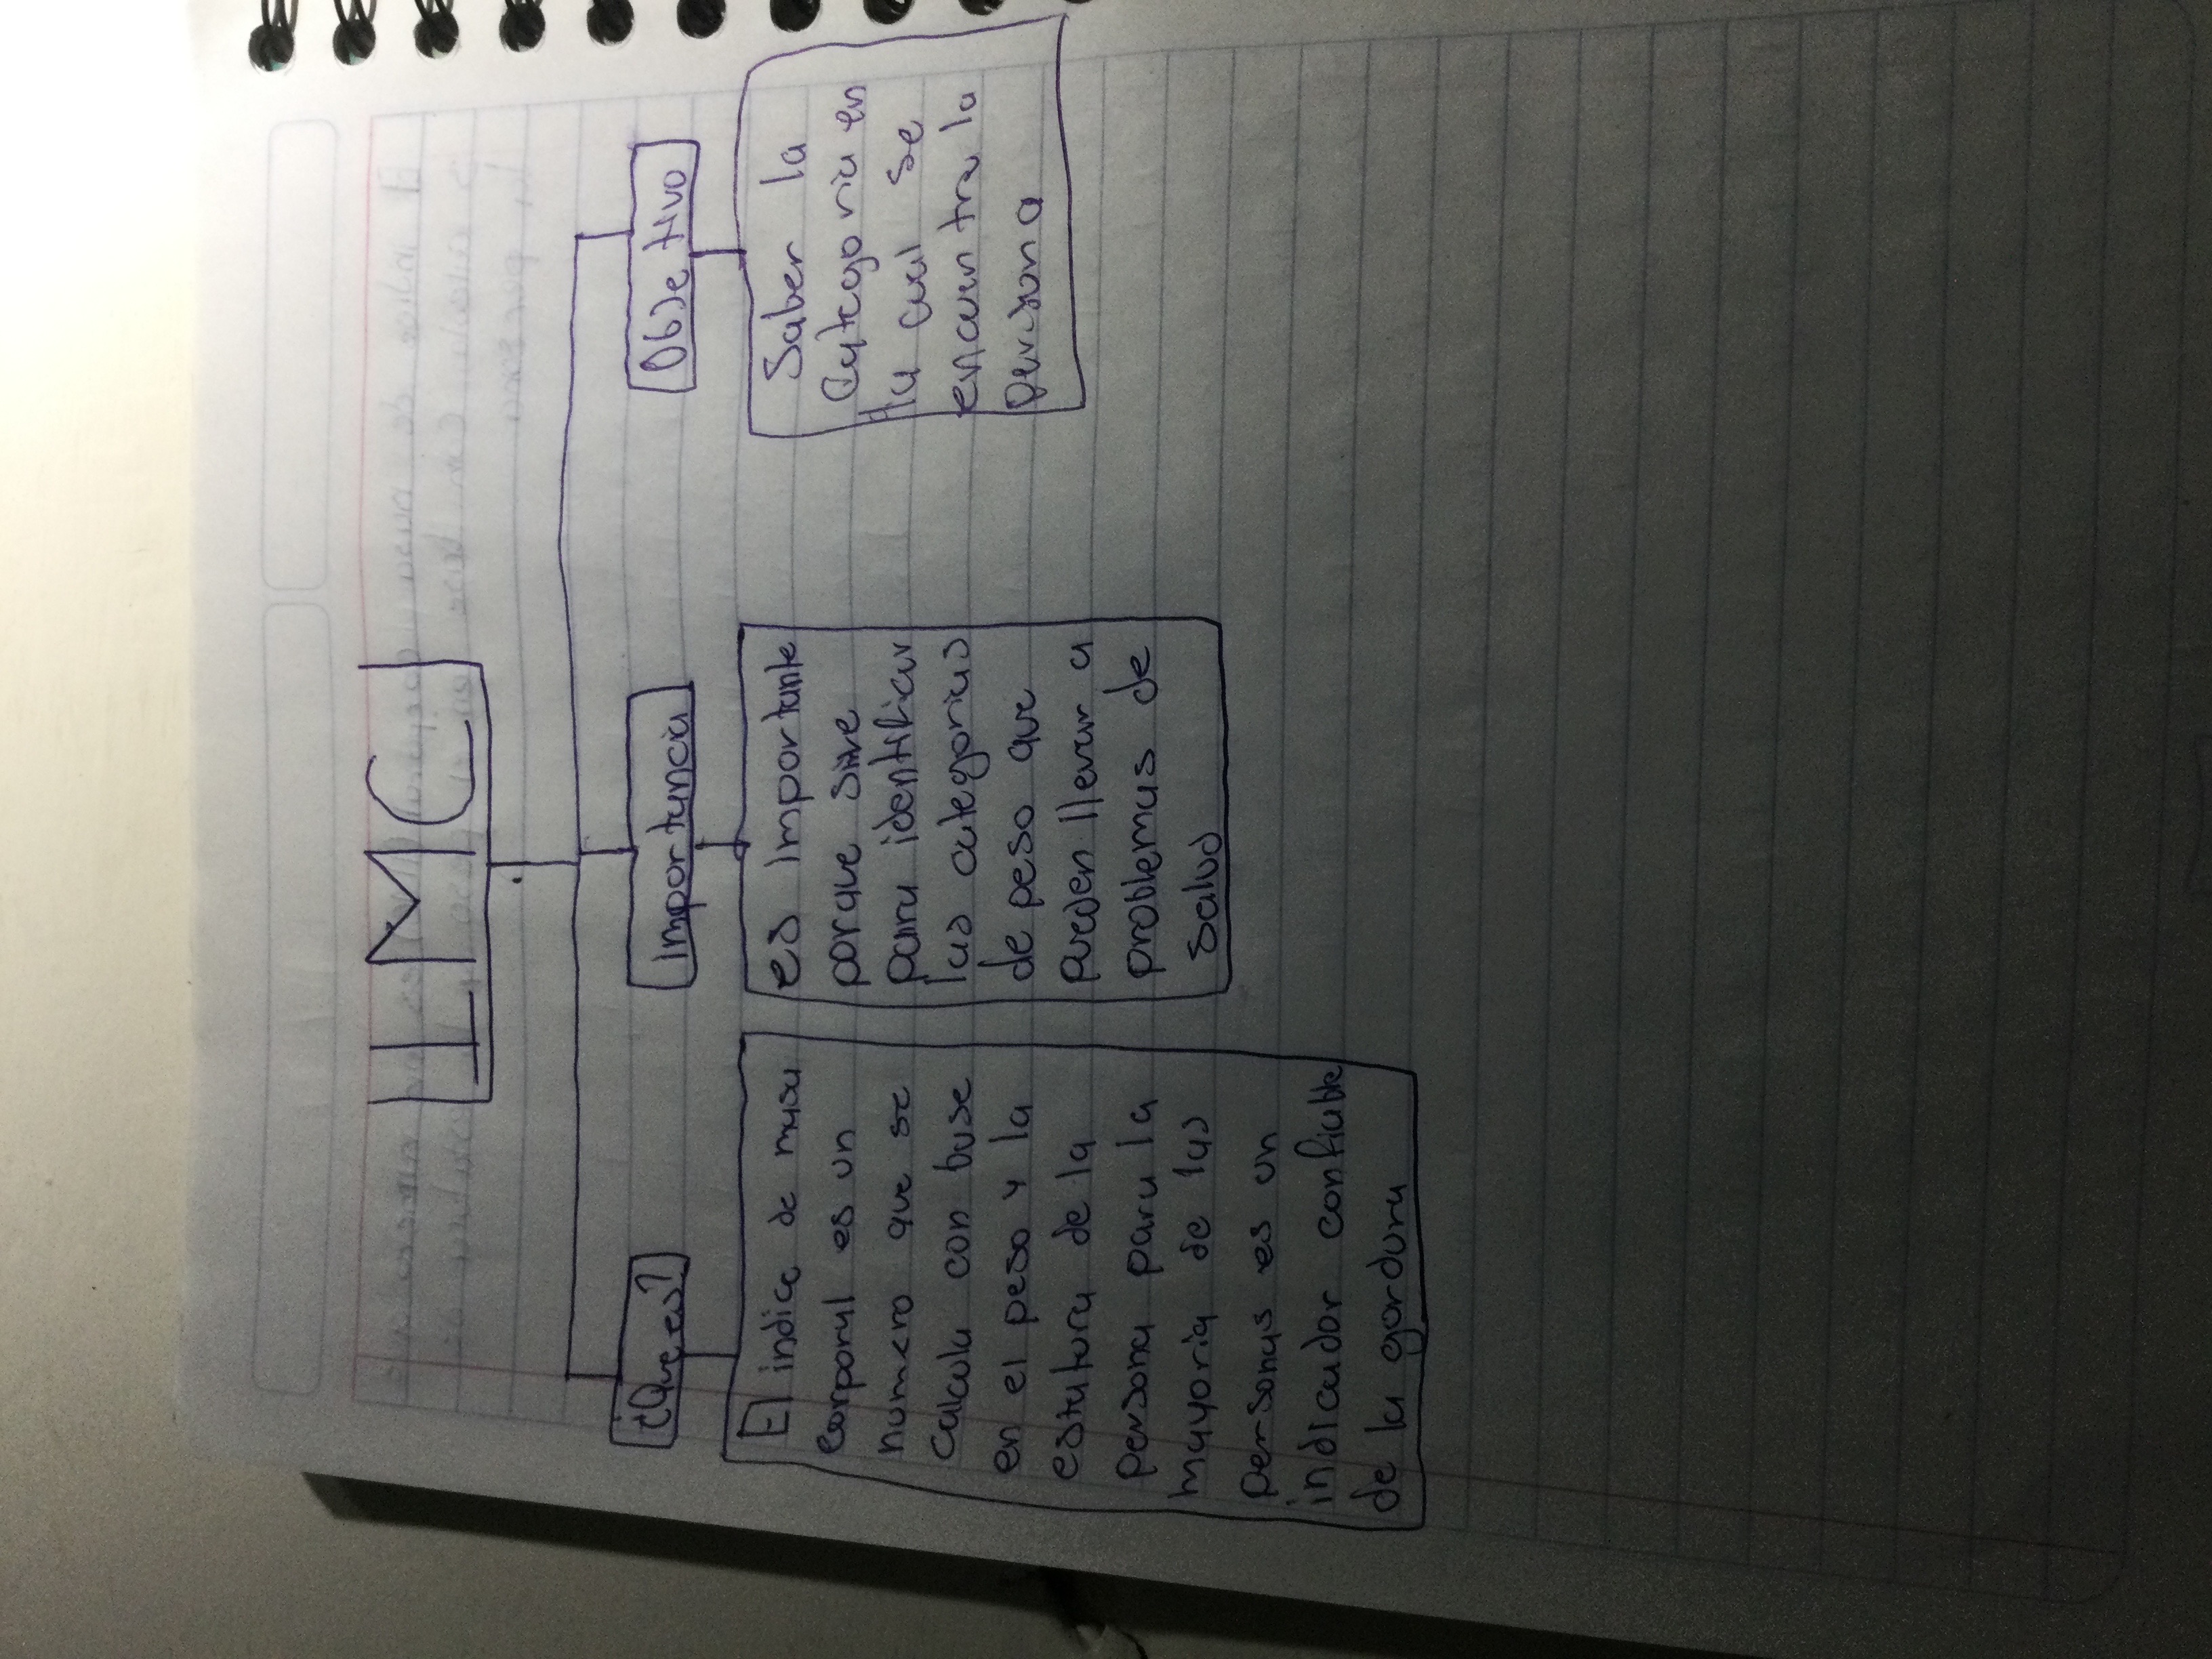 IMC
¿Que es?
El indice de masa
corporal es un
numero que se
calcula con base
en el peso y la
estatura de la
persona para la
mayoria de las
personas es un
indicador confiable
de la gordura
Importancia
es importante
porque sirve
para identificar
las categorias
de peso que
pueden llevar a
problemas de
salud
Objetivo
Saber la
categoria en
la cual se
encuentra la
persona